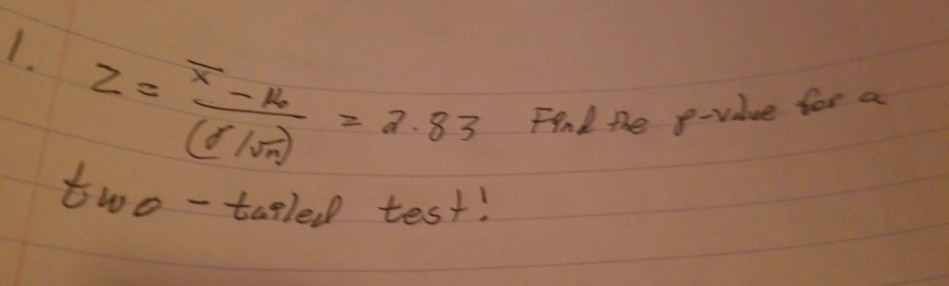 1. Z = x̄ - μ₀ / (σ/√n) = 2.83 Find the p-value for a
two-tailed test!